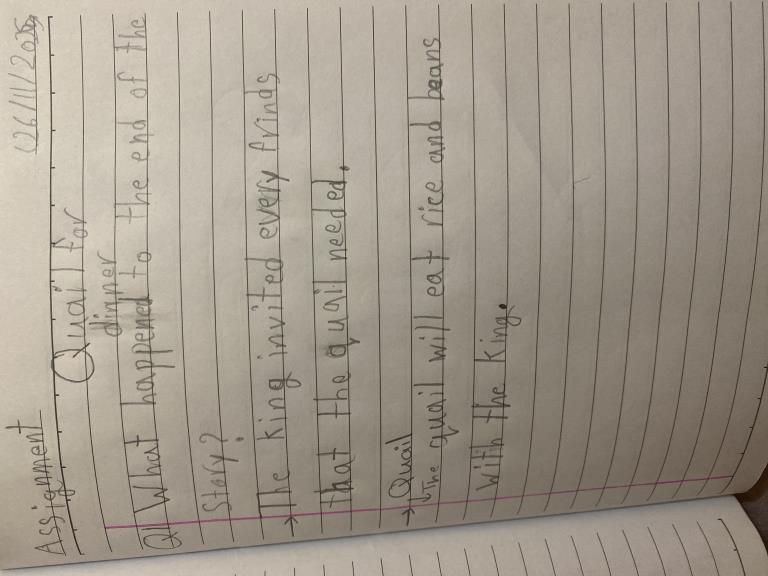 Assignment 26/11/2025
Quail for
dinner
Q1 What happened to the end of the
story?
→ The king invited every frinds
that the quail needed.
→ Quail
↓The quail will eat rice and beans
with the king.